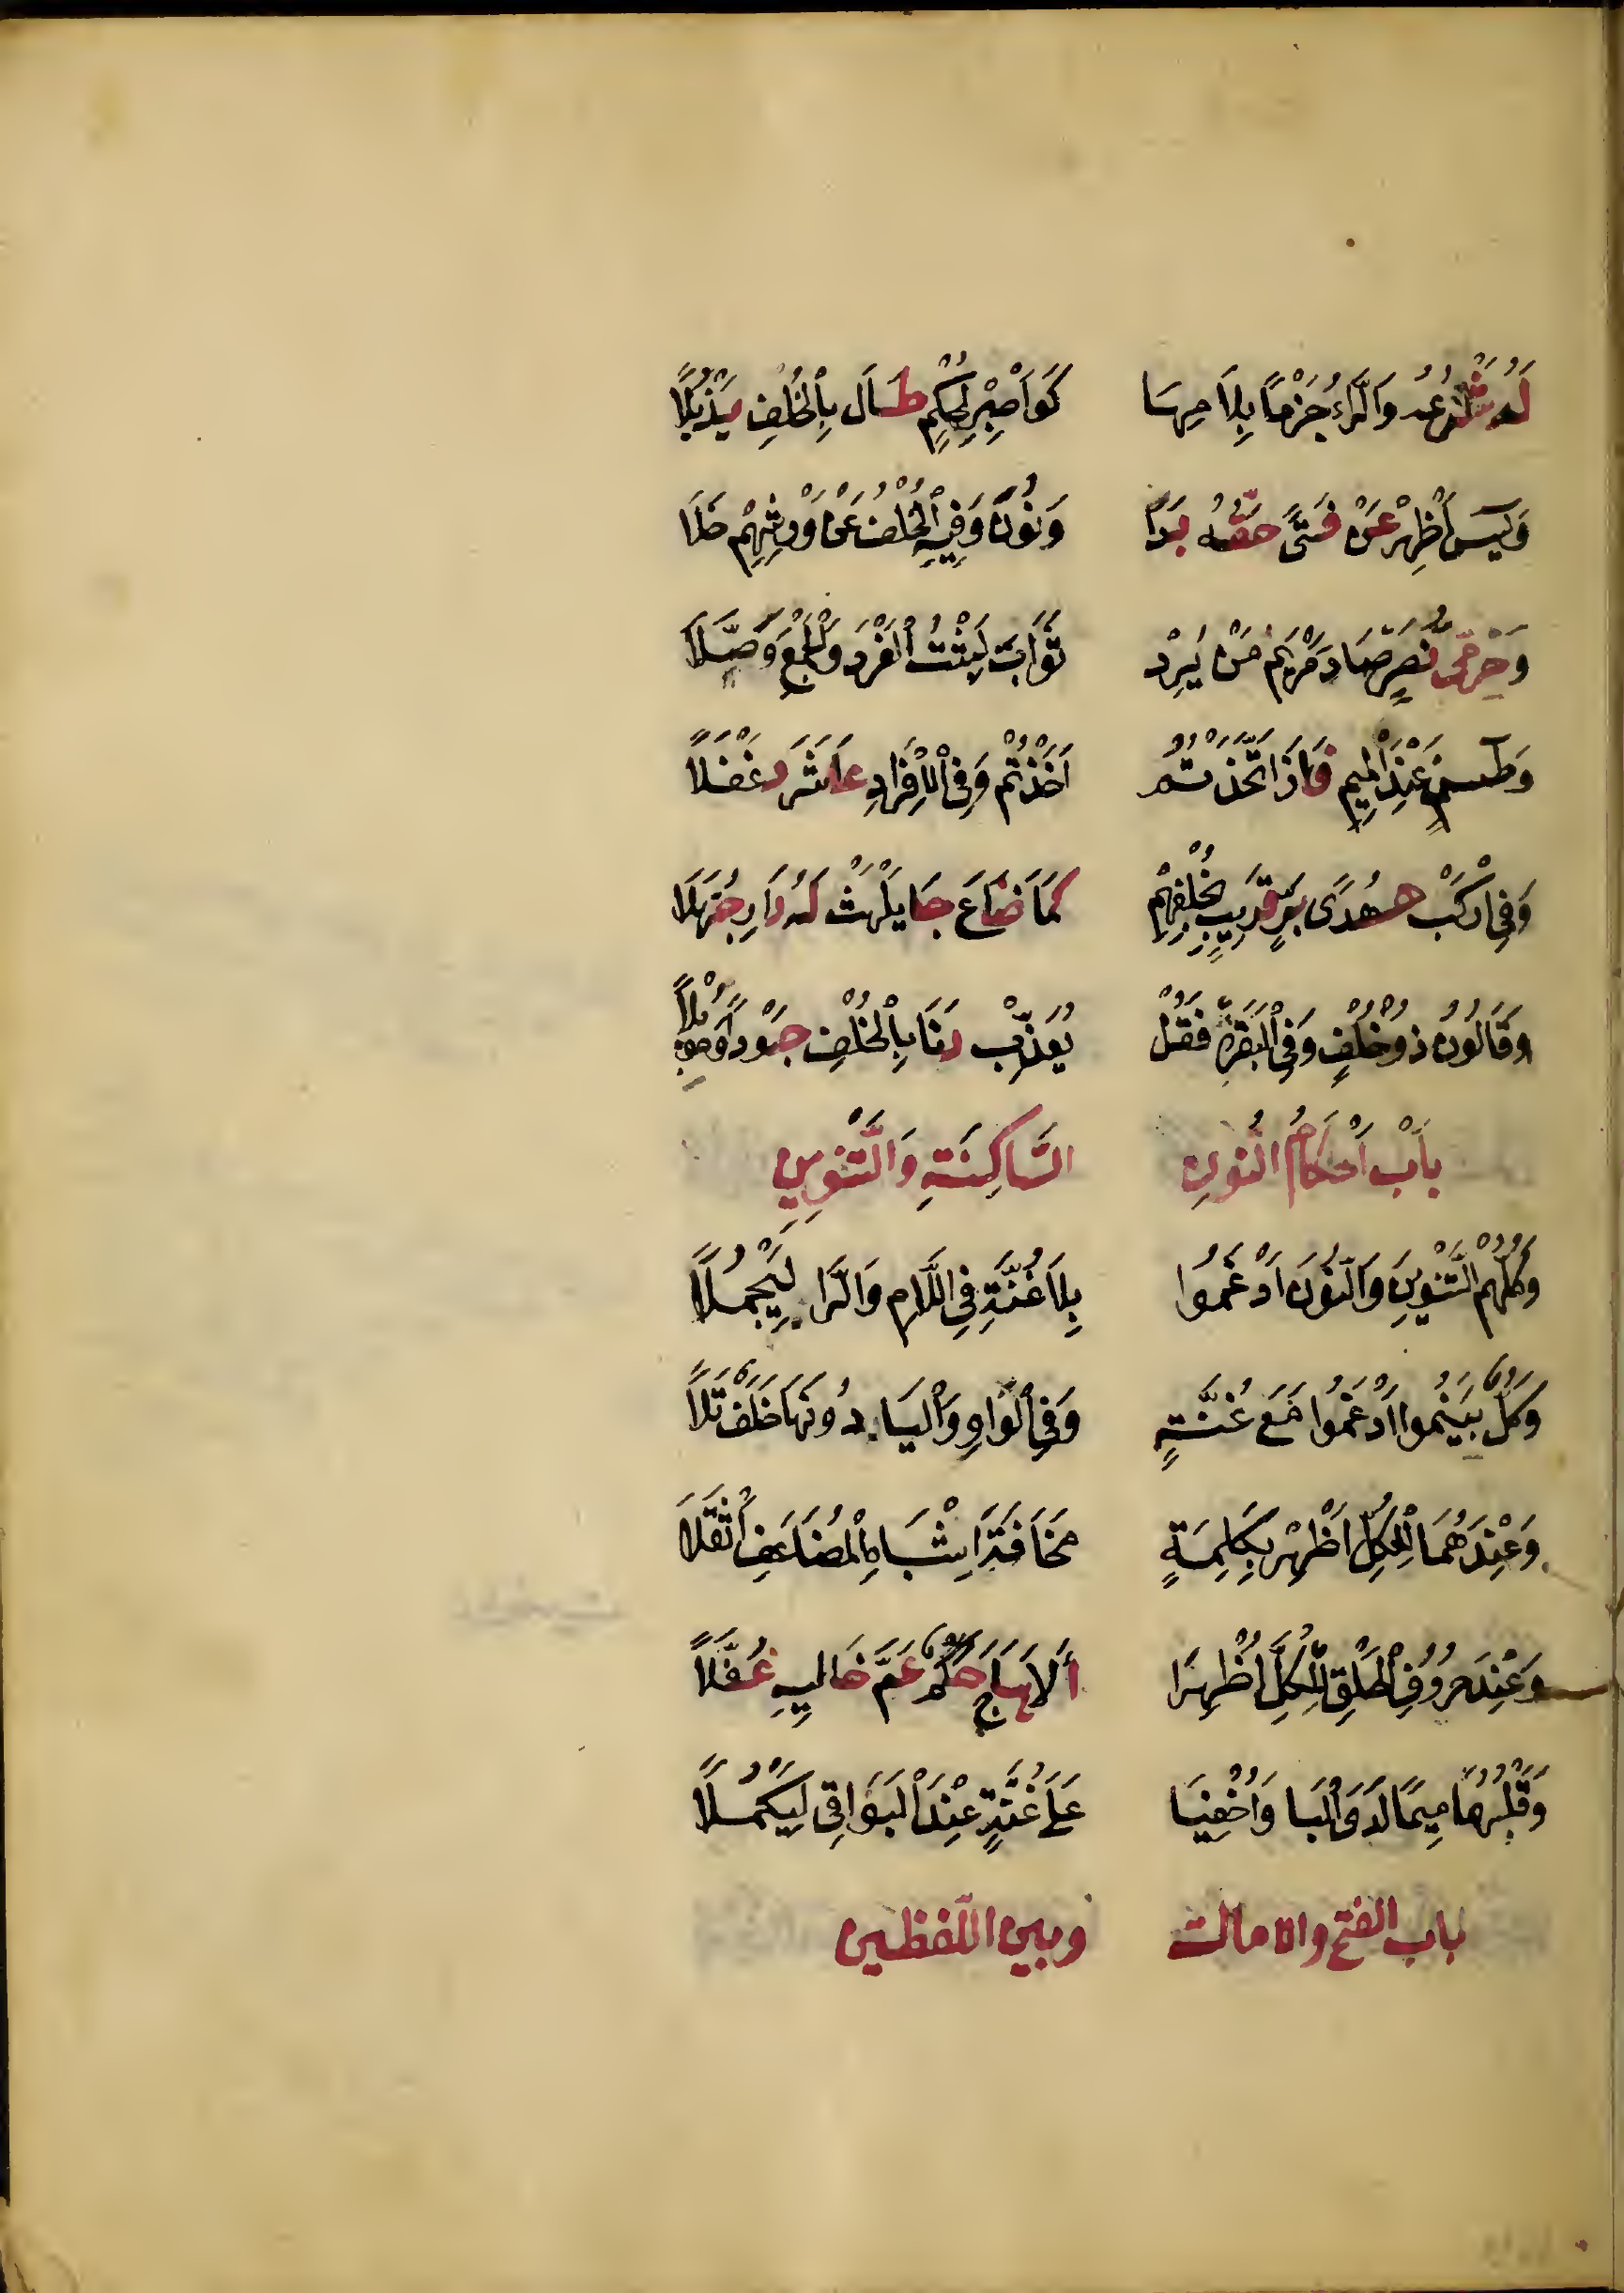 لَهُ شَرْعُهُ وَالرَّاءُ جَزْمًا بِلَامِهَا كَوَاصْبِرْ لِحُكْمِ طَالَ بِالْخُلْفِ يَذْبُلَا
وَيس أَظْهِرْ عَنْ فَتًى حَقُّهُ بَدَا وَنُونَ وَفِيهِ الْخُلْفُ عَنْ وَرْشِهِمْ خَلَا
وَحِرْمِيُّ نَصْرٍ صَادَ مَرْيَمَ مَنْ يُرِدْ ثَوَابَ لَبِثْتَ الْفَرْدَ وَالْجَمْعَ وَصَّلَا
وَطسم عِنْدَ الْمِيمِ فَازَ اتَّخَذْتُمُ أَخَذْتُمْ وَفِي الْإِفْرَادِ عَاشَرَ دَغْفَلَا
وَفِي ارْكَبْ هُدَى بَرٍّ قَرِيبٍ بِخُلْفِهِمْ كَمَا ضَاعَ جَا يَلْهَثْ لَهُ دَارِ جُهَّلَا
وَقَالُونُ ذُو خُلْفٍ وَفِي الْبَقَرَهْ فَقُلْ يُعَذِّبْ دَنَا بِالْخُلْفِ جَوْدًا وَمُوبِلًا
بَابُ أَحْكَامِ النُّونِ السَّاكِنَةِ وَالتَّنْوِينِ
وَكُلُّهُمُ التَّنْوِينَ وَالنُّونَ ادْغَمُوا بِلَا غُنَّةٍ فِي اللَّامِ وَالرَّا لِيَجْمُلَا
وَكُلٌّ بِيَنْمُو ادْغَمُوا مَعَ غُنَّةٍ وَفِي الْوَاوِ وَالْيَا دُونَهَا خَلَفٌ تَلَا
وَعِنْدَهُمَا لِلْكُلِّ أَظْهِرْ بِكِلْمَةٍ مَخَافَةَ إِشْبَاهِ الْمُضَاعَفِ أَثْقَلَا
وَعِنْدَ حُرُوفِ الْحَلْقِ لِلْكُلِّ أُظْهِرَا أَلَا هَاجَ حُكْمٌ عَمَّ خَالِيهِ غُفَّلَا
وَقَلْبُهُمَا مِيمًا لَدَى الْبَا وَأُخْفِيَا عَلَى غُنَّةٍ عِنْدَ الْبَوَاقِي لِيَكْمُلَا
باب الفتح والامالة وبين اللفظين